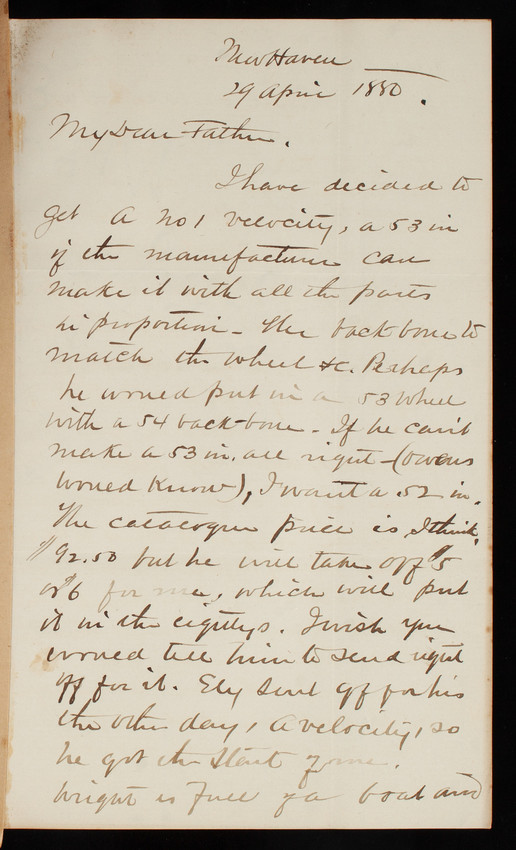 New Haven
29 April 1880.
My Dear Father.
I have decided to
get a No 1 velocity, a 53 in
if the manufacturer can
make it with all the parts
in proportion - the back bone to
match the wheel &c. Perhaps
he would put in a 53 wheel
with a 54 back-bone. If he can't
make a 53 in. all right - (Owens
would know), I want a 52 in.
The catalogue price is, I think,
$92.50 but he will take off $5
or $6 for me, which will put
it in the eightys. I wish you
would tell him to send right
off for it. Ely sent off for his
the other day, a velocity, so
he got the start of me.
Wright is full of a boat and